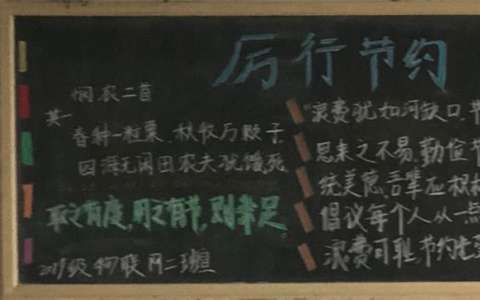 厉行节约
悯农二首
其一
春种一粒粟,秋收万颗子
四海无闲田农夫犹饿死
取之有度,用之有节,则常足
2019级物联网二班
"浪费犹如河缺口,节
思来之不易,勤俭节
统美德,吾辈应积极
倡议每个人从一点
浪费可耻,节约光荣